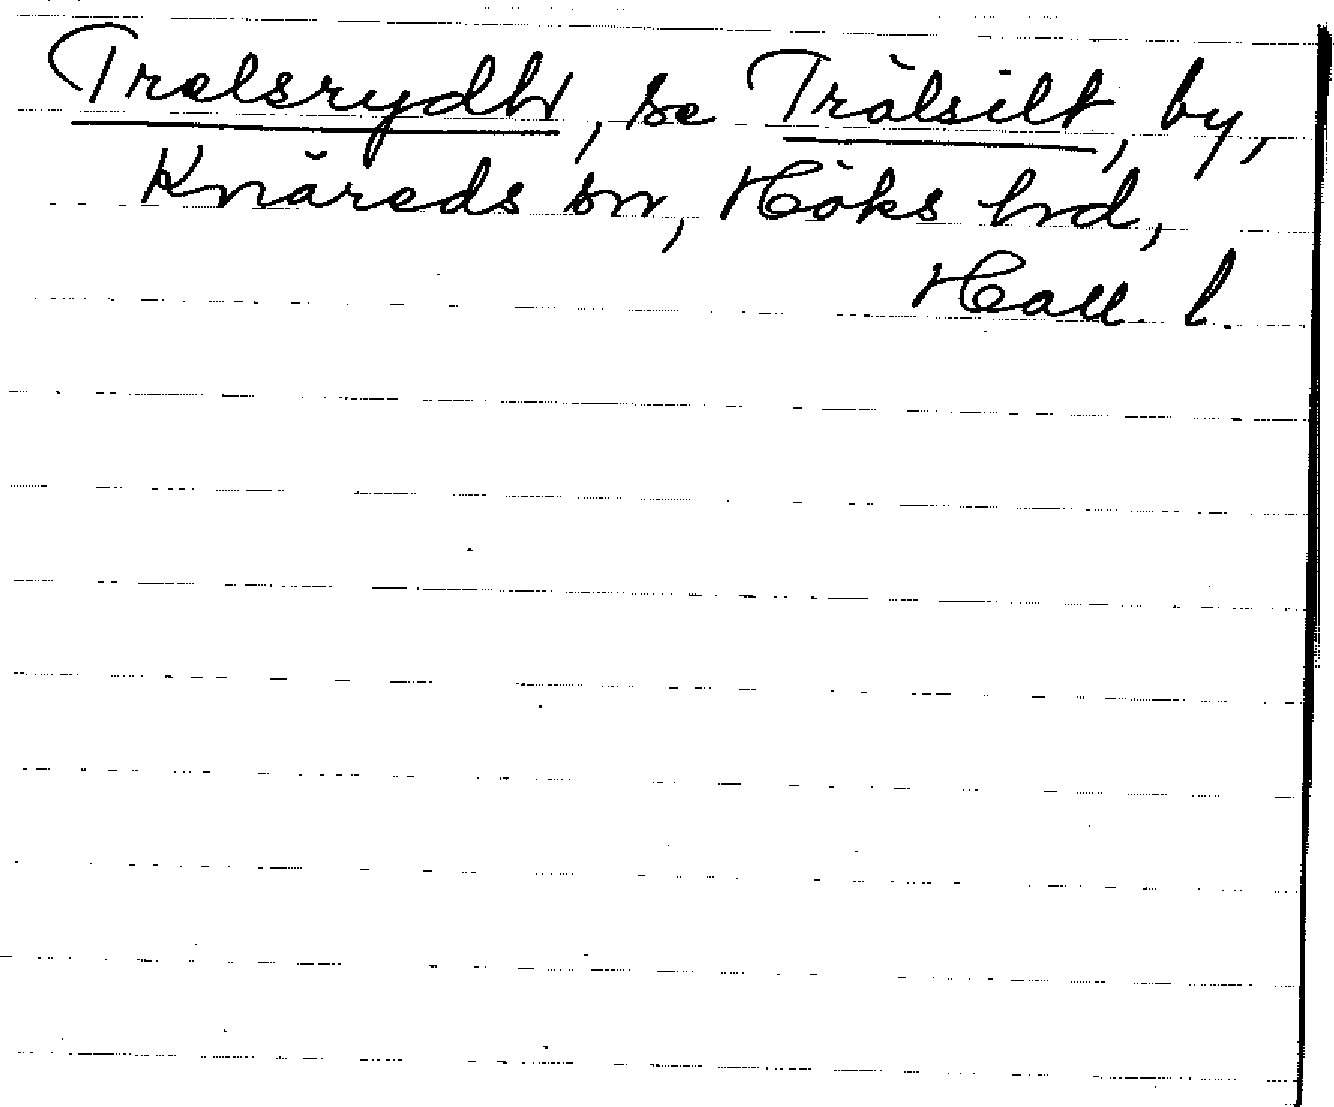 Trelsrydh, se Trälsilt, by,
Knäreds sn, Höks hd,
Hall. l.